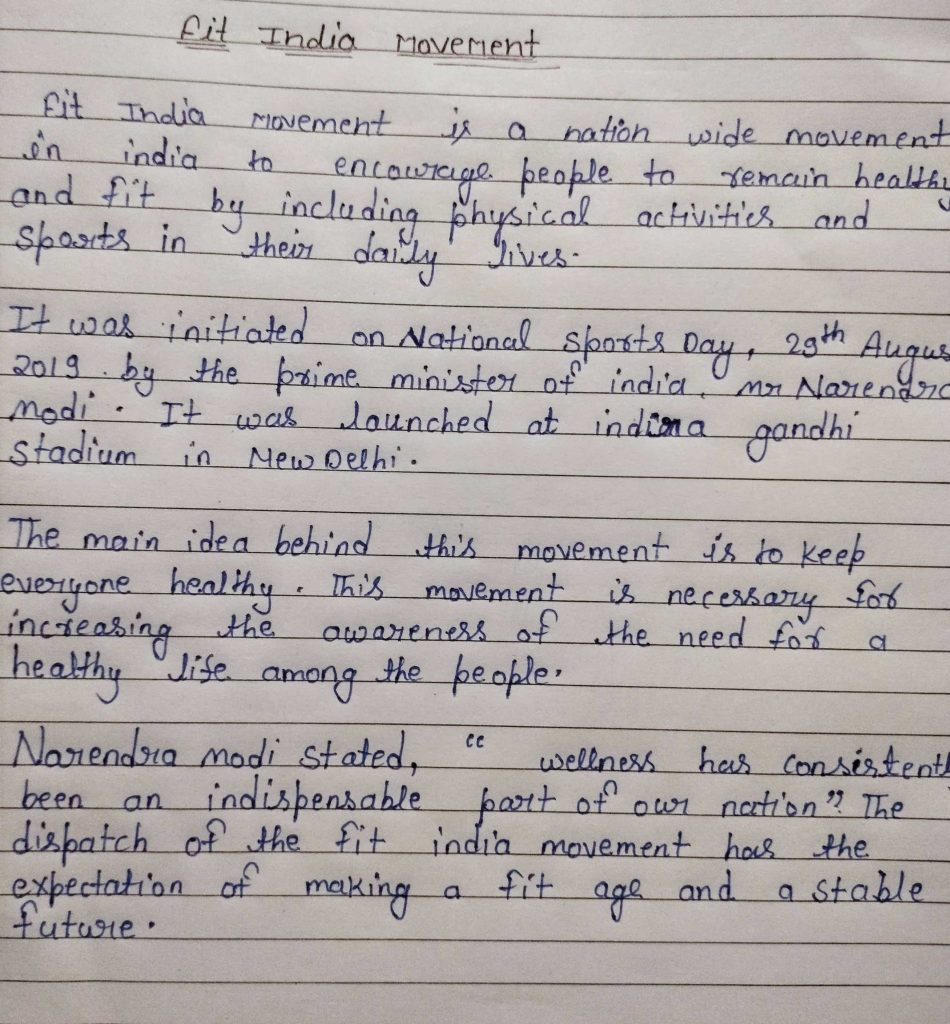 Fit India Movement
Fit India Movement is a nation wide movement
in india to encourage people to remain healthy
and fit by including physical activities and
Sports in their daily lives.
It was initiated on National Sports Day, 29th Augus
2019. by the prime minister of india, mr Narendra
modi. It was launched at indira gandhi
Stadium in New Delhi.
The main idea behind this movement is to keep
everyone healthy. This movement is necessary for
increasing the awareness of the need for a
healthy life among the people.
Narendra modi stated, "wellness has consistentl
been an indispensable part of our nation". The
dispatch of the fit india movement has the
expectation of making a fit age and a stable
future.